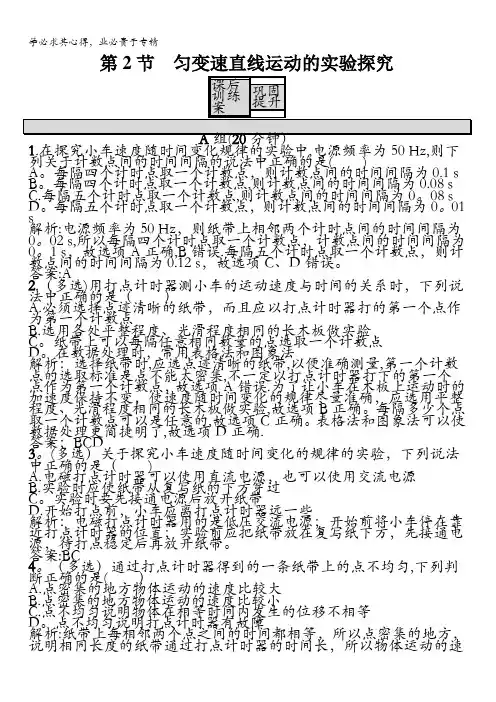 学必求其心得，业必贵于专精
第2节　匀变速直线运动的实验探究
课后训练案 巩固提升
A组(20分钟)
1.在探究小车速度随时间变化规律的实验中,电源频率为50 Hz,则下
列关于计数点间的时间间隔的说法中正确的是(　　)
A。每隔四个计时点取一个计数点，则计数点间的时间间隔为0.1 s
B。每隔四个计时点取一个计数点,则计数点间的时间间隔为0.08 s
C.每隔五个计时点取一个计数点,则计数点间的时间间隔为0。08 s
D。每隔五个计时点取一个计数点，则计数点间的时间间隔为0。01
s
解析:电源频率为50 Hz，则纸带上相邻两个计时点间的时间间隔为
0。02 s,所以每隔四个计时点取一个计数点，计数点间的时间间隔为
0。1 s，故选项A正确,B错误,每隔五个计时点取一个计数点，则计
数点间的时间间隔为0.12 s，故选项C、D错误。
答案:A
2.（多选)用打点计时器测小车的运动速度与时间的关系时，下列说
法中正确的是（　　）
A.必须选择点迹清晰的纸带，而且应以打点计时器打的第一个点作
为第一个计数点
B.选用各处平整程度、光滑程度相同的长木板做实验
C。纸带上可以每隔任意相同数量的点选取一个计数点
D。在数据处理时，常用表格法和图象法
解析：选择纸带时,应选点迹清晰的纸带,以便准确测量,第一个计数
点的选取标准是点不能太密集,不一定以打点计时器打下的第一个
点作为第一个计数点，故选项A错误;为了让小车在木板上运动时的
加速度保持不变，使速度随时间变化的规律尽量准确，应选用平整
程度、光滑程度相同的长木板做实验,故选项B正确。每隔多少个点
取一个计数点可以是任意的,故选项C正确。表格法和图象法可以使
数据处理更简捷明了,故选项D正确.
答案：BCD
3。(多选）关于探究小车速度随时间变化的规律的实验，下列说法
中正确的是（　　）
A.电磁打点计时器可以使用直流电源，也可以使用交流电源
B.实验时应使纸带从复写纸的下方穿过
C。实验时要先接通电源后放开纸带
D.开始打点前，小车应离打点计时器远一些
解析：电磁打点计时器用的是低压交流电源；开始前将小车停在靠
近打点计时器的位置；实验前应把纸带放在复写纸下方，先接通电
源，待打点稳定后再放开纸带。
答案:BC
4。（多选）通过打点计时器得到的一条纸带上的点不均匀,下列判
断正确的是(　　)
A.点密集的地方物体运动的速度比较大
B.点密集的地方物体运动的速度比较小
C.点不均匀说明物体在相等时间内发生的位移不相等
D。点不均匀说明打点计时器有故障
解析:纸带上每相邻两个点之间的时间都相等，所以点密集的地方，
说明相同长度的纸带通过打点计时器的时间长，所以物体运动的速